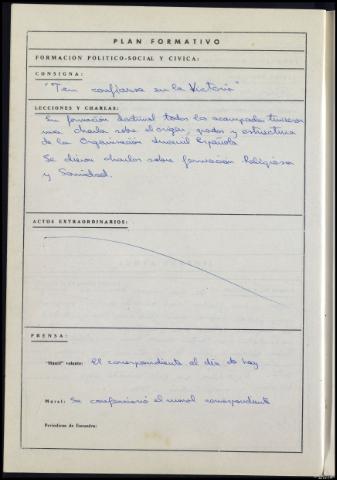 PLAN FORMATIVO
FORMACION POLITICO-SOCIAL Y CIVICA:
CONSIGNA:
"Ten confianza en la Victoria"
LECCIONES Y CHARLAS:
En formación doctrinal todos los acampados tuvieron
una charla sobre el origen, grados y estructura
de la Organización Juvenil Española
Se dieron charlas sobre formación Religiosa
y Sanidad.
ACTOS EXTRAORDINARIOS:
PRENSA:
"Mástil" volante: El correspondiente al día de hoy
Mural: Se confeccionó el mural correspondiente
Periódicos de Escuadra: